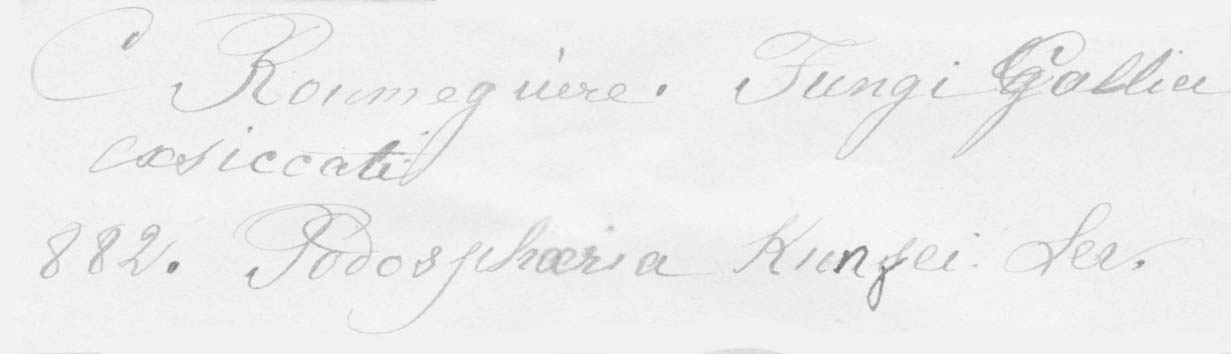 C Roumeguère. Fungi Gallici
exsiccati
882. Podosphæria Kunzei. Lev.